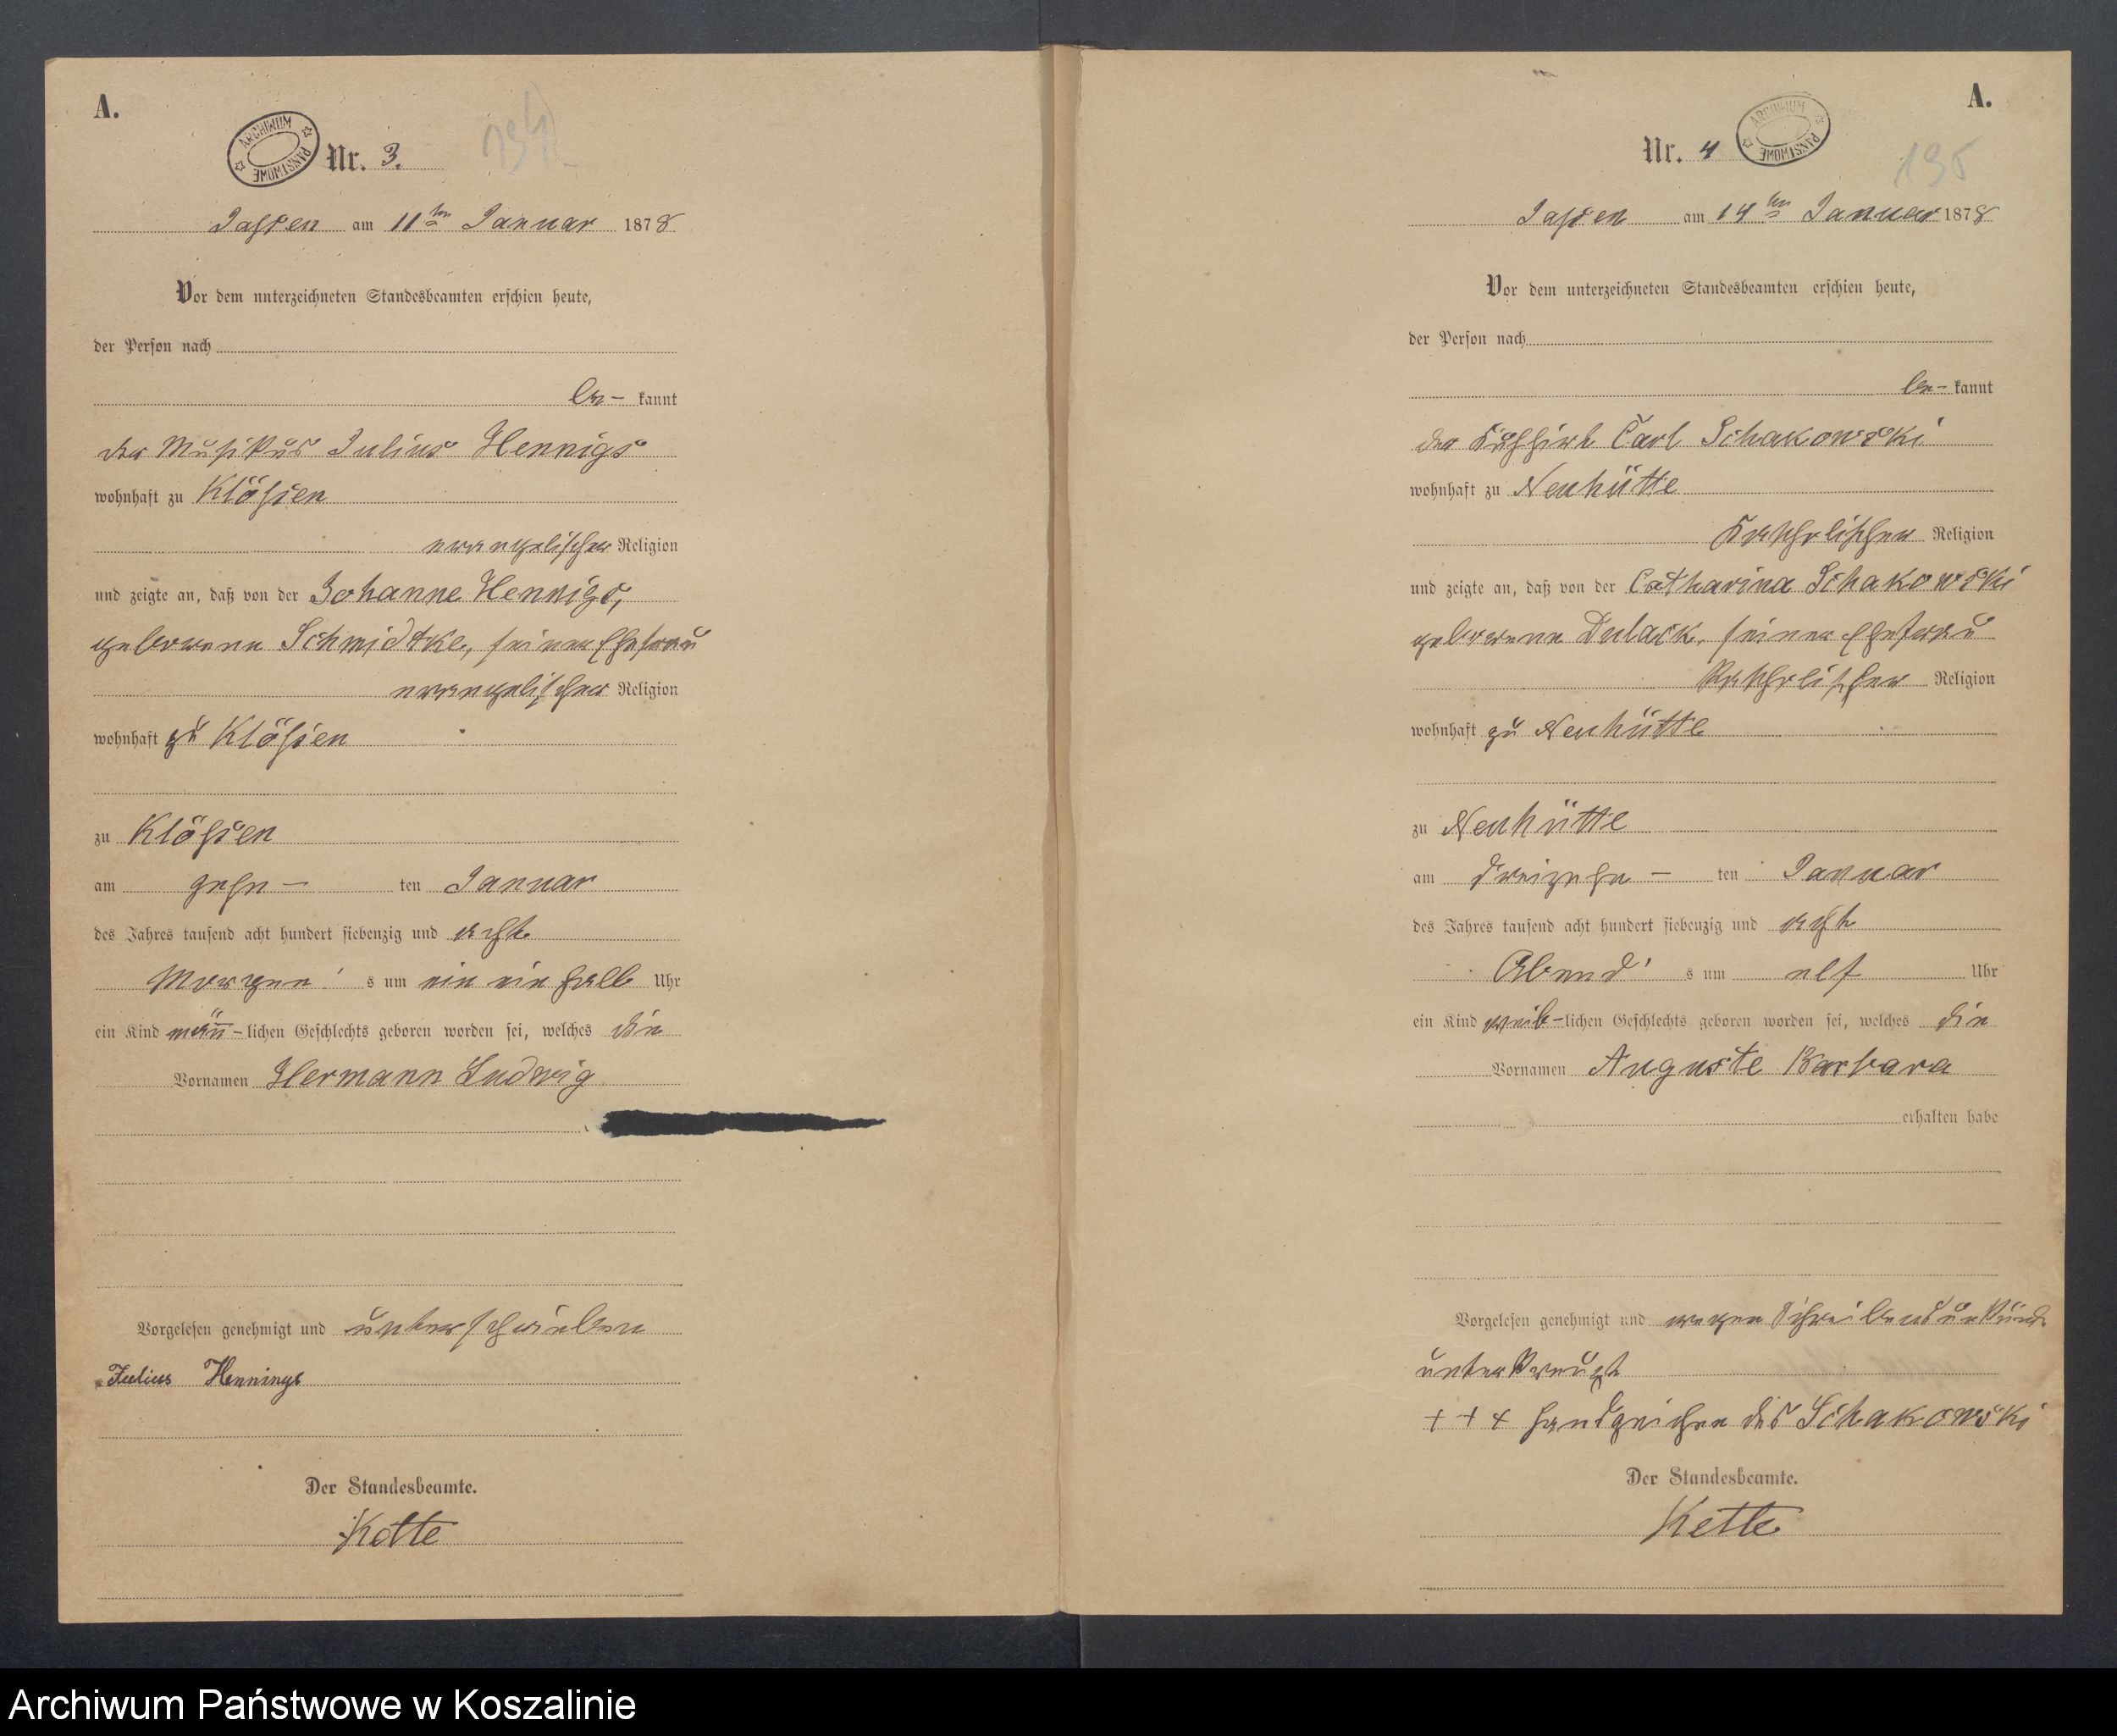 A.
ARCHIWUM PAŃSTWOWE
Nr. 3.
134
Jassen am 11ten Januar 1878
Vor dem unterzeichneten Standesbeamten erschien heute,
der Person nach
be- kannt
der Musikus Julius Hennigs
wohnhaft zu Klössen
evangelischer Religion
und zeigte an, daß von der Johanne Hennigs,
geborenen Schmidtke, seiner Ehefrau
evangelischer Religion
wohnhaft zu Klössen
zu Klössen
am zehn- ten Januar
des Jahres tausend acht hundert siebenzig und acht
Morgen's um ein ein halb Uhr
ein Kind män̄-lichen Geschlechts geboren worden sei, welches die
Vornamen Hermann Ludwig
Vorgelesen genehmigt und unterschrieben
Julius Hennings
Der Standesbeamte.
Kette
A.
Nr. 4
ARCHIWUM PAŃSTWOWE
195
Jassen am 14ten Januar 1878
Vor dem unterzeichneten Standesbeamten erschien heute,
der Person nach
be- kannt
der Carl Schakowski
wohnhaft zu Neuhütte
Katholischer Religion
und zeigte an, daß von der Catharina Schakowski
geborenen Dulack, seiner Ehefrau
Katholischer Religion
wohnhaft zu Neuhütte
zu Neuhütte
am dreizehn- ten Januar
des Jahres tausend acht hundert siebenzig und acht
Abend's um elf Uhr
ein Kind weib-lichen Geschlechts geboren worden sei, welches die
Vornamen Auguste Barbara
erhalten habe
Vorgelesen genehmigt und wegen Schreibensunkunde
unterkreuzt
+ + + Handzeichen des Schakowski
Der Standesbeamte.
Kette
Archiwum Państwowe w Koszalinie